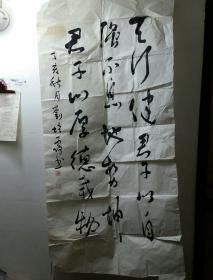 天行健君子以自
强不息地势坤
君子以厚德载物
丁亥秋月刘